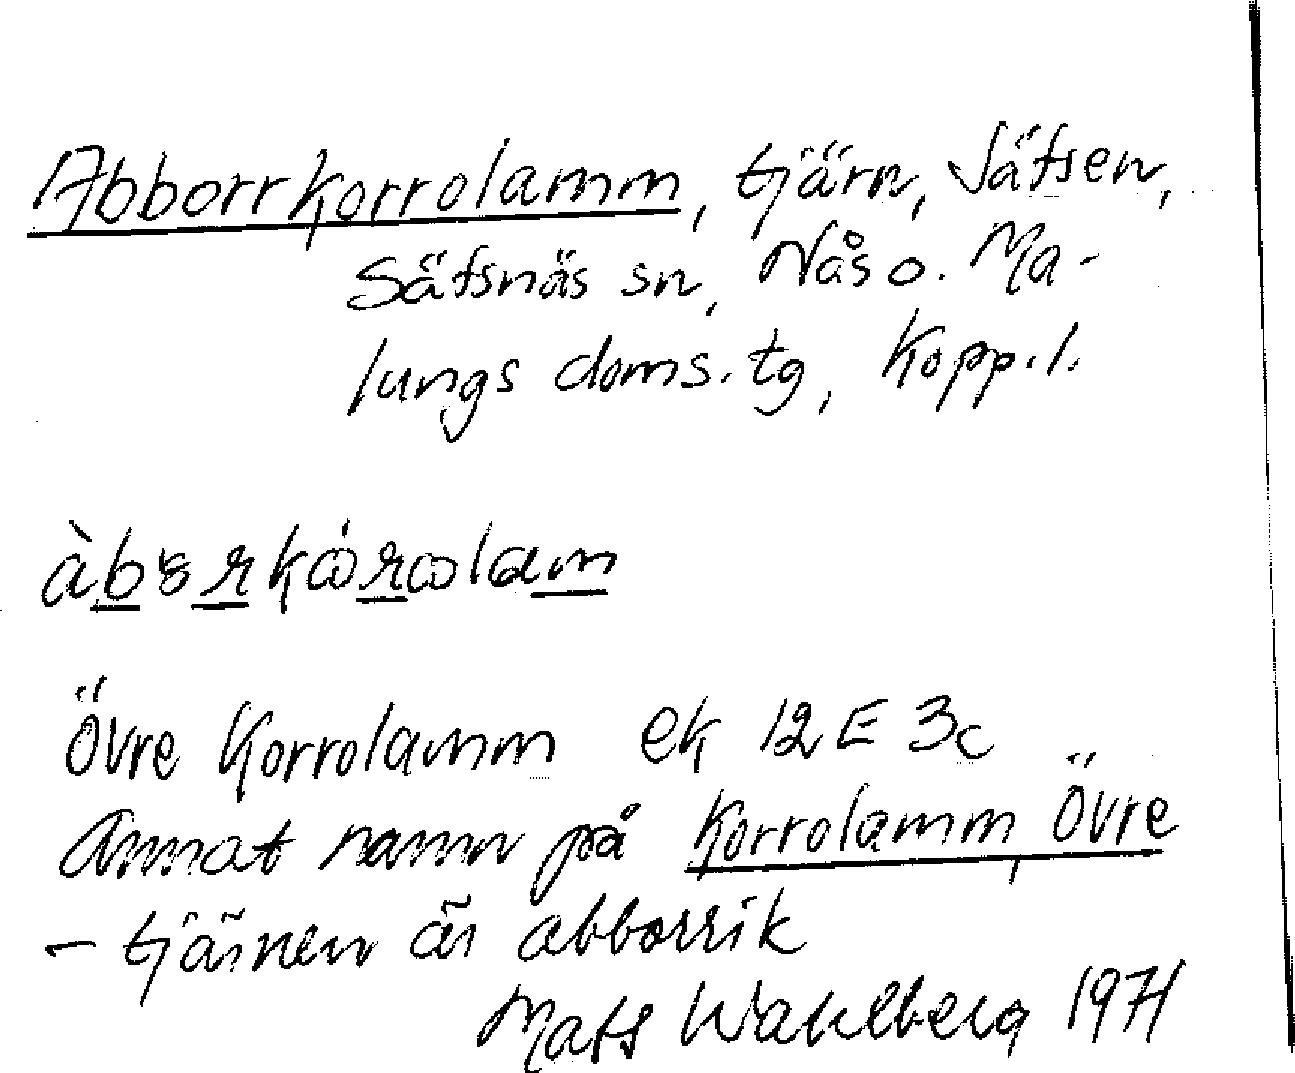 Abborrkorrolamm, tjärn, Säfsen,
Säfsnäs sn, Nås o. Ma-
lungs doms. tg, Kopp. l.
Övre Korrolamm ek 12E 3c
Annat namn på Korrolamm, Övre
– tjärnen är abborrik
Mats Wahlberg 1971